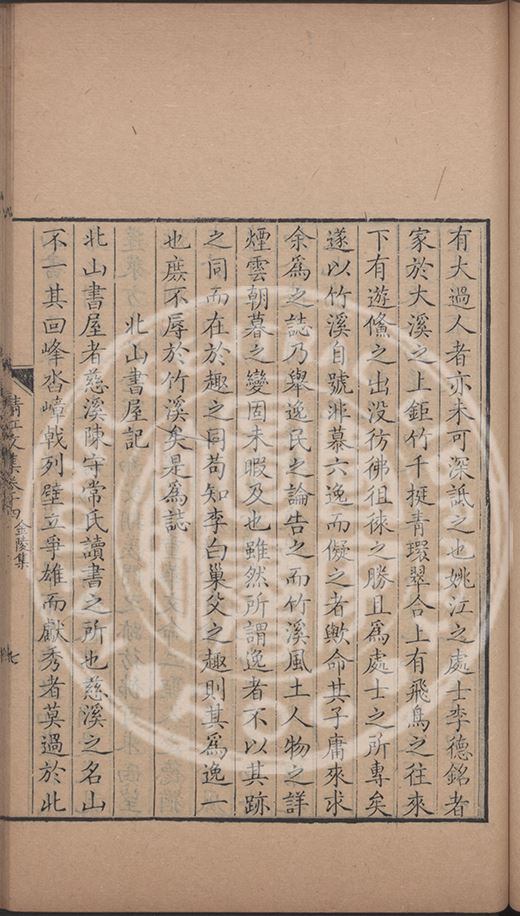 有大過人者亦未可深詆之也姚江之處士李德銘者
家於大溪之上鉅竹千挺青環翠合上有飛鳥之往來
下有遊鯈之出没彷彿徂徠之勝且爲處士之所專矣
遂以竹溪自號非慕六逸而儗之者歟命其子庸來求
余爲之誌乃舉逸民之論告之而竹溪風土人物之詳
煙雲朝暮之變固未暇及也雖然所謂逸者不以其跡
之同而在於趣之同苟知李白巢父之趣則其爲逸一
也庶不辱於竹溪矣是爲誌
北山書屋記
北山書屋者慈溪陳守常氏讀書之所也慈溪之名山
不一其回峰沓嶂戟列壁立爭雄而獻秀者莫過於北
清江文集卷十四
金陵集